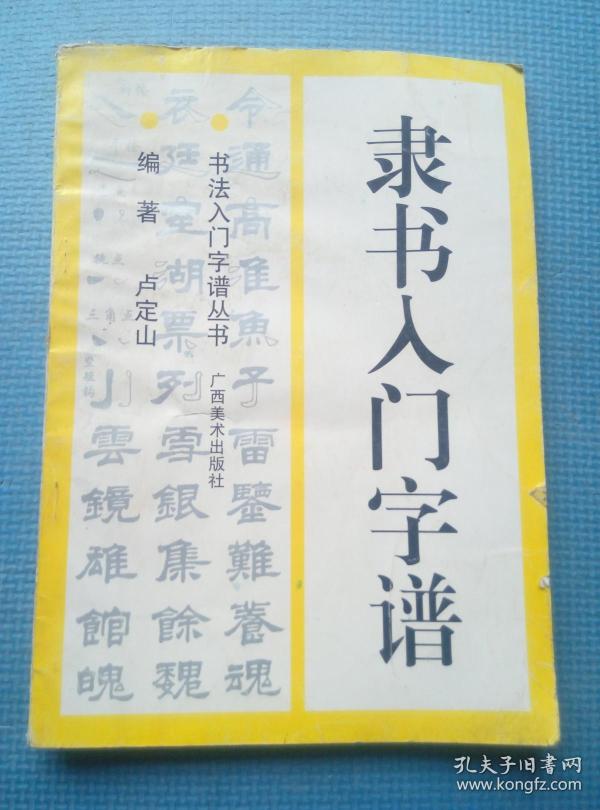 隶书入门字谱
书法入门字谱丛书
广西美术出版社
编著 卢定山
令通高淮魚子雷鑒難養魂
衣廷空湖票列雪銀集餘魏
川雲鏡雄館魄
孔夫子旧书网
www.kongfz.com